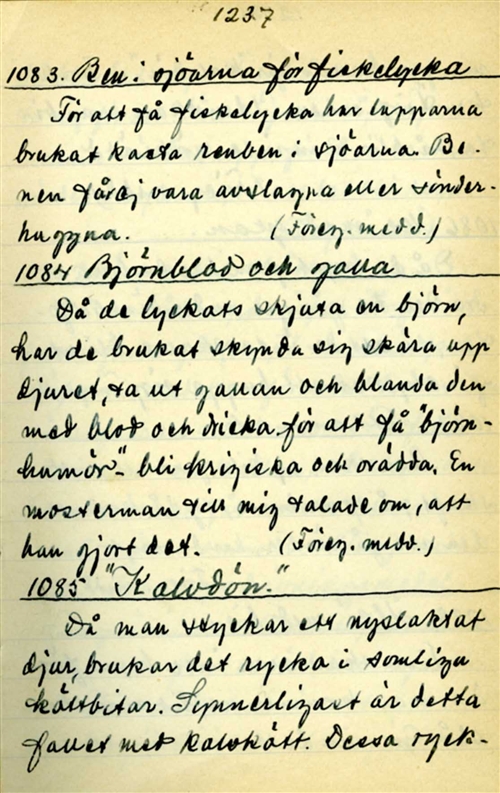 1237
1083. Ben i sjöarna för fiskelycka
För att få fiskelycka har lapparna
brukat kasta renben i sjöarna. Be-
nen får ej vara avslagna eller sönder-
huggna. (Föreg. medd.)
1084 Björnblod och galla
Då de lyckats skjuta en björn,
har de brukat skynda sig skära upp
djuret, ta ut gallan och blanda den
med blod och dricka för att få "björn-
humör" - bli krigiska och orädda. En
mosterman till mig talade om, att
han gjort det. (Föreg. medd.)
1085 "Kalvdön."
Då man styckar ett nyslaktat
djur, brukar det rycka i somliga
köttbitar. Synnerligast är detta
fallet med kalvkött. Dessa ryck-